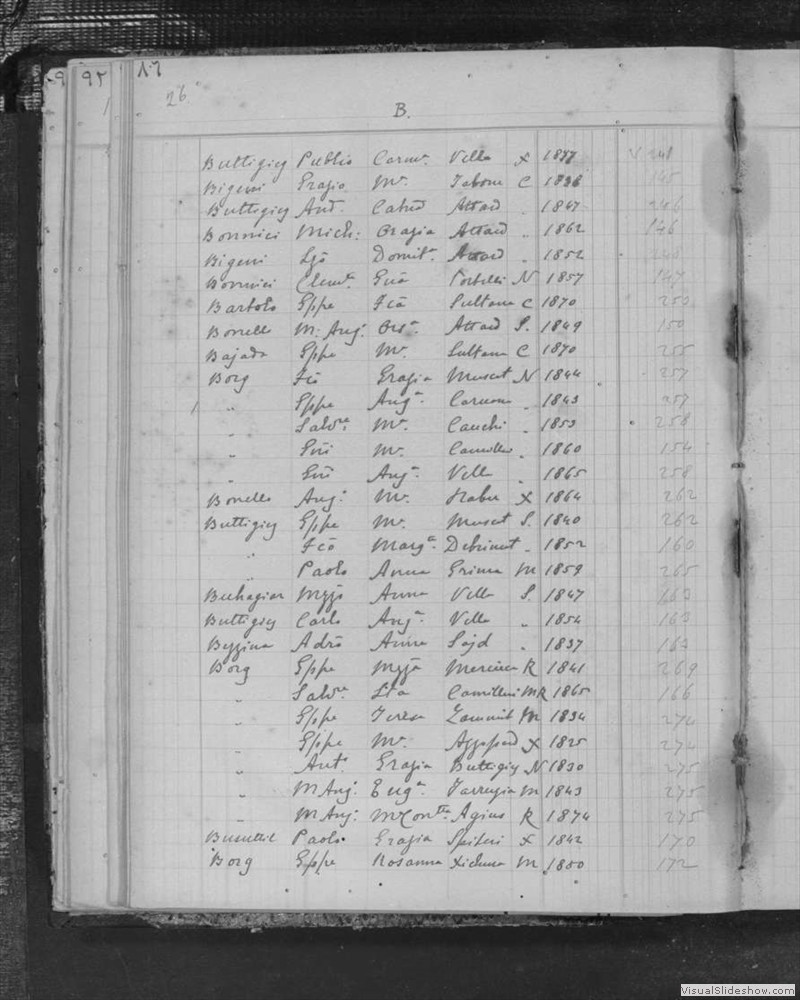 26
B.
Buttigieg Publio Carmª. Vella X 1877 V 241
Bigeni Grazia Mª. Tabone C 1838 145
Buttigieg Antº. Attard . 1847 246
Bonnici Mich: Grazia Attard . 1862 146
Bigeni Domitª. Attard . 1852
Bonnici Clemte. Portelli N 1857 147
Bartolo Gppe Fca Sultana C 1870 250
Bonello M: Ang: Orsª. Attard S. 1849 150
Bajada Gppe Mª. Sultana C 1870 255
Borg Fco Grazia Muscat N 1844 257
" Gppe Angª. . 1843 257
" Salvre. Mª. Cauchi . 1853 258
" Mª. Camilleri . 1860 154
" Ang: Vella . 1865 258
Bonello Ang: Mª. X 1864 262
Buttigieg Gppe Mª. Muscat S. 1840 262
" Fco Margta. Debrincat . 1852 160
" Paolo Anna Grima M 1859 265
Buhagiar Anna Vella S. 1847 163
Buttigieg Carlo Angª. Vella . 1854 163
Bezzina Anna Sajd . 1837 163
Borg Gppe Mercieca R 1841 269
" Salvre. Camilleri MR 1865 166
" Gppe Teresa Zammit M 1834 274
" Gppe Mª. X 1825 274
" Antº. Grazia Buttigieg N 1830 275
" M Ang: Eugª. Farrugia M 1843 275
" M Ang: Agius R 1874 275
Busuttil Paolo Grazia Spiteri X 1842 170
Borg Gppe Rosanna Xiduna M 1850 172
VisualSlideshow.com